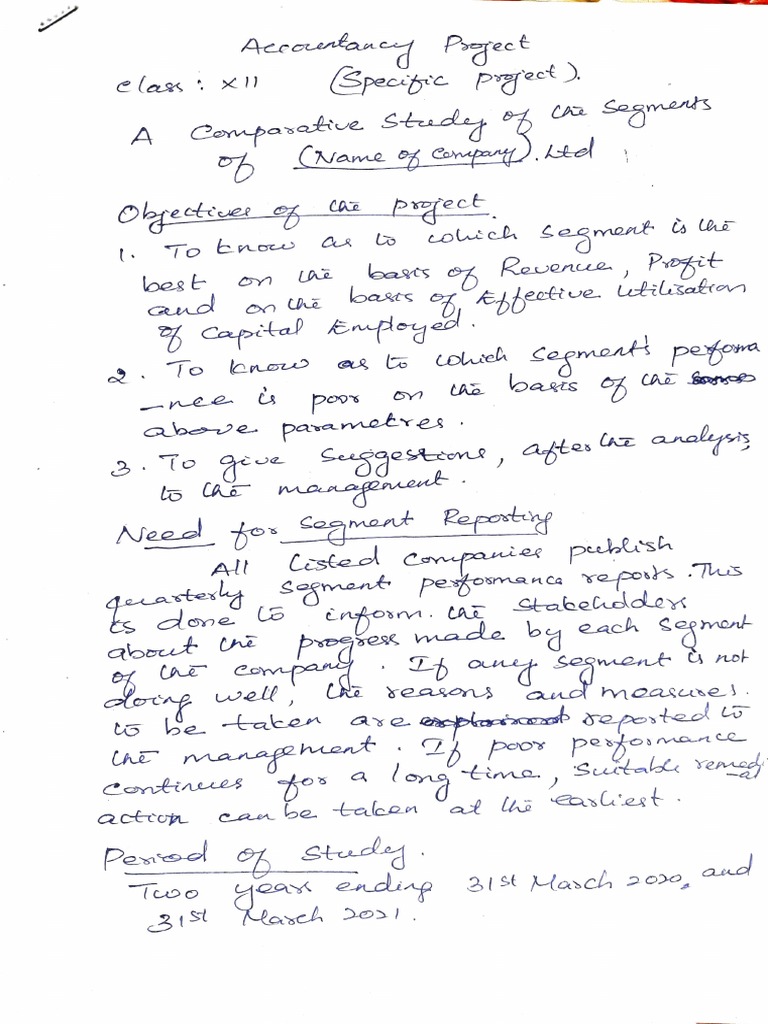 Accountancy Project
Class: XII (Specific Project).
A Comparative Study of the Segments
of (Name of Company). Ltd
Objectives of the project.
1. To know as to which segment is the
best on the basis of Revenue, Profit
and on the basis of Effective Utilisation
of Capital Employed.
2. To know as to which segment's performa
-nce is poor on the basis of the
above parametres.
3. To give suggestions, after the analysis,
to the management.
Need for Segment Reporting
All listed companies publish
quarterly segment performance reports. This
is done to inform the Stakeholders
about the progress made by each segment
of the company. If any segment is not
doing well, the reasons and measures.
to be taken are reported to
the management. If poor performance
continues for a long time, suitable remedi
-al
action can be taken at the earliest.
Period of Study.
Two years ending 31st March 2020, and
31st March 2021.